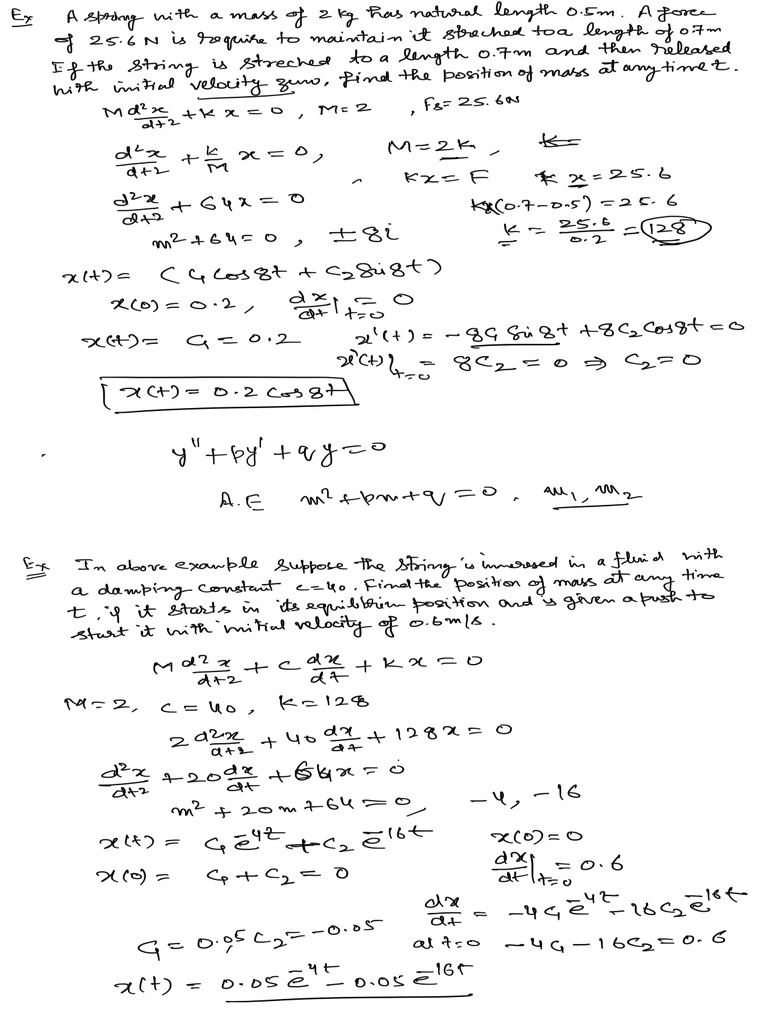 Ex A spring with a mass of 2 kg has natural length 0.5m. A force
of 25.6 N is require to maintain it streched to a length of 0.7m
If the string is streched to a length 0.7m and then released
with initial velocity zero, find the position of mass at any time t.
M d²x/dt² + k x = 0, M = 2, Fs = 25.6N
d²x/dt² + k/M x = 0, M = 2k,
kx = F k x = 25.6
d²x/dt² + 64x = 0 k(0.7-0.5) = 25.6
m² + 64 = 0, ±8i k = 25.6/0.2 = 128
x(t) = (C₁ cos 8t + C₂ Sin 8t)
x(0) = 0.2, dx/dt|t=0 = 0
x(t) = C₁ = 0.2 x'(t) = -8C₁ Sin 8t + 8C₂ Cos 8t = 0
x'(t)|t=0 = 8C₂ = 0 ⇒ C₂ = 0
x(t) = 0.2 Cos 8t
y" + py' + qy = 0
A.E m² + pm + q = 0, m₁, m₂
Ex In above example suppose the string is immersed in a fluid with
a damping constant c=40. Find the position of mass at any time
t, if it starts in its equilibrium position and is given a push to
start it with initial velocity of 0.6 m/s.
M d²x/dt² + C dx/dt + kx = 0
M = 2, C = 40, K = 128
2 d²x/dt² + 40 dx/dt + 128x = 0
d²x/dt² + 20 dx/dt + 64x = 0
m² + 20m + 64 = 0, -4, -16
x(t) = C₁ e^-4t + C₂ e^-16t x(0) = 0
x(0) = C₁ + C₂ = 0 dx/dt|t=0 = 0.6
dx/dt = -4C₁ e^-4t - 16C₂ e^-16t
C₁ = 0.05, C₂ = -0.05 at t=0 -4C₁ - 16C₂ = 0.6
x(t) = 0.05 e^-4t - 0.05 e^-16t